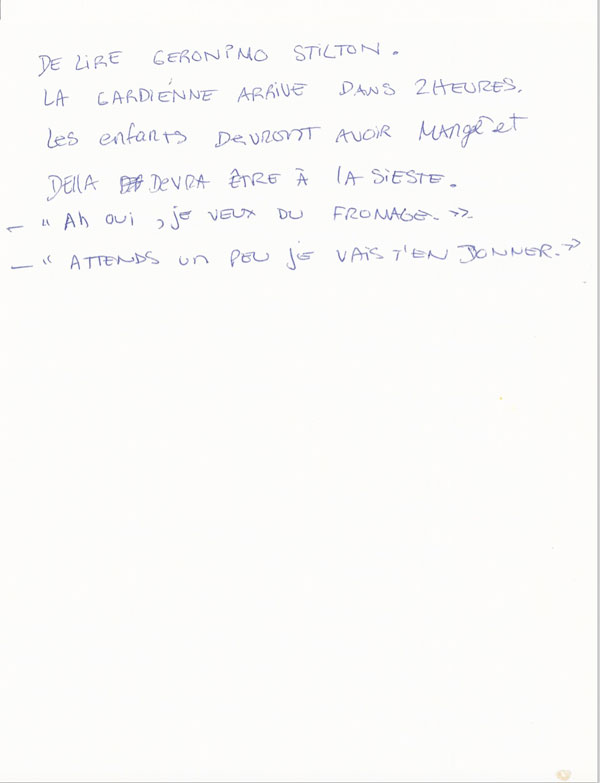 DE LIRE GERONIMO STILTON.
LA GARDIÉNNE ARRIVE DANS 2HEURES.
les enfants DEVRONT AVOIR MANGÉ et
DELLA DEVRA ÊTRE À LA SIESTE.
– " Ah oui, je VEUX DU FROMAGE. »
– " ATTENDS un PEU je VAIS T'EN DONNER. »